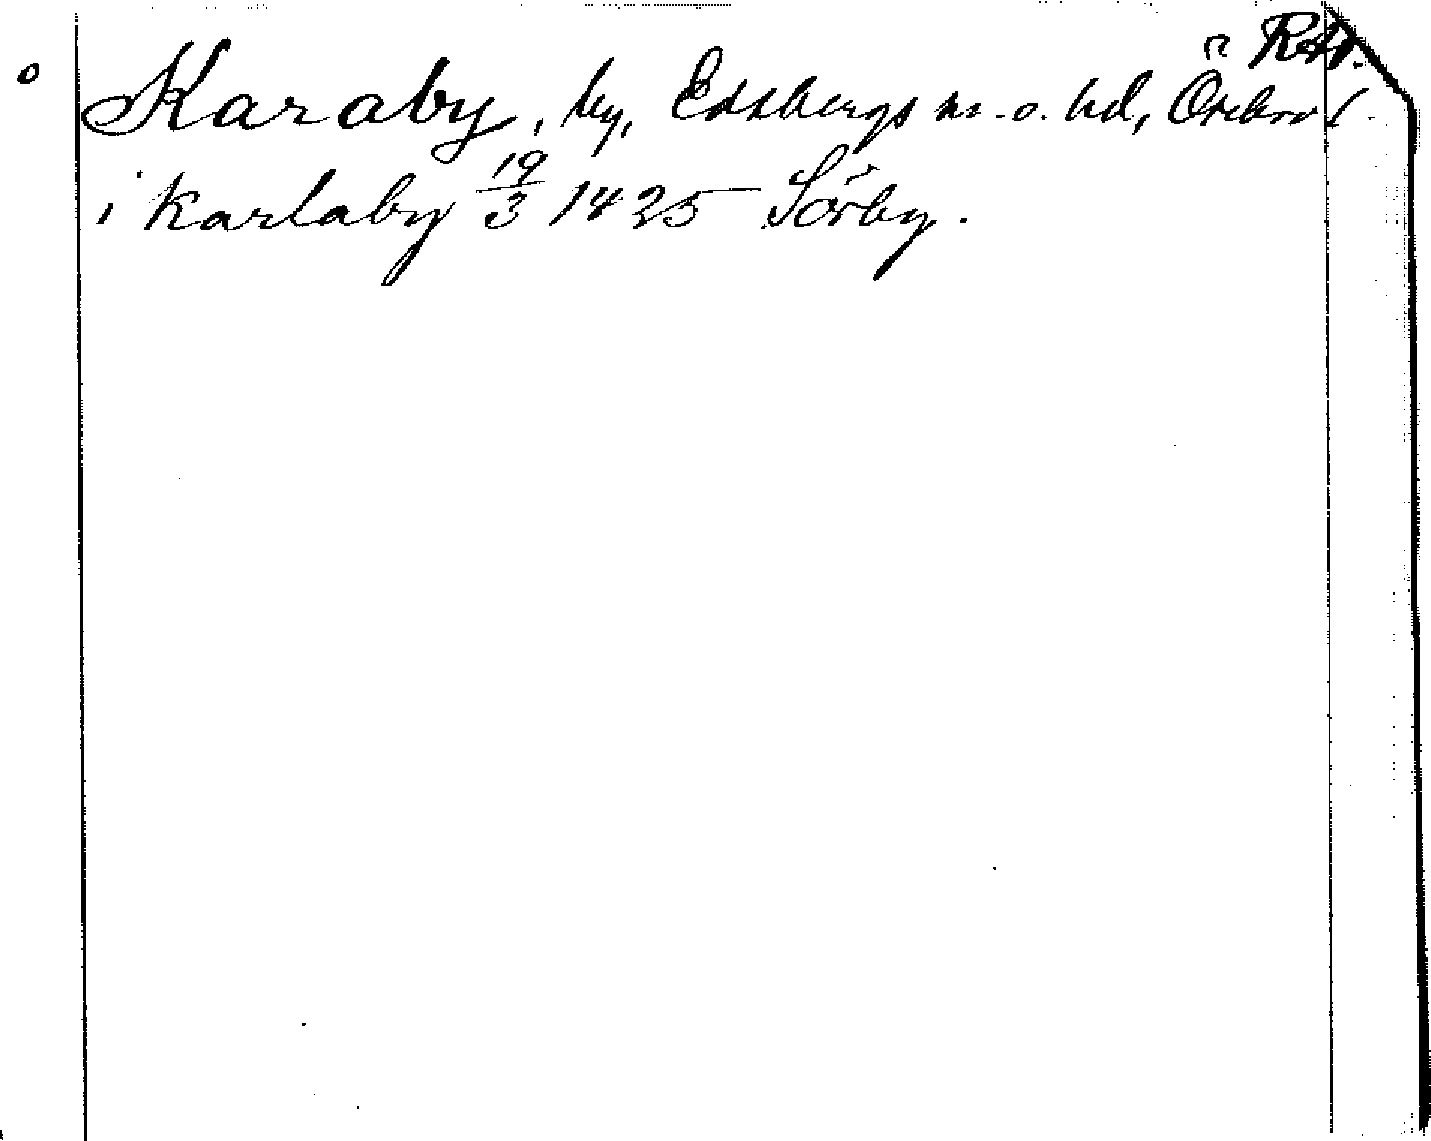 Ref.
Karaby, by, Edsbergs sn. o. hd, Örebro l.
i karlaby 19/3 1425 Sörby.